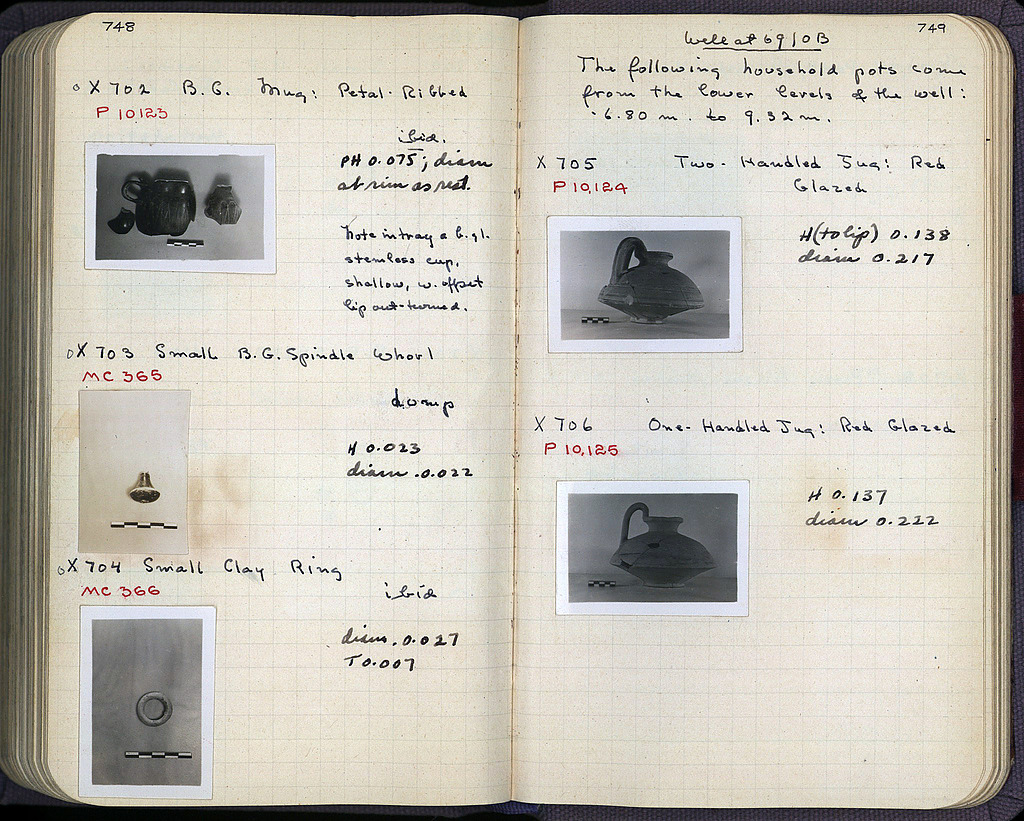 748
X 702 B.G. Mug: Petal-Ribbed
P 10,123
ibid.
PH 0.075; diam
at rim as rest.
Note in tray a b.gl.
stemless cup,
shallow, w. offset
lip out-turned.
X 703 Small B.G. Spindle Whorl
MC 365
dump
H 0.023
diam. 0.022
X 704 Small Clay Ring
MC 366
ibid
diam. 0.027
T 0.007
749
Well at 69/OB
The following household pots come
from the lower levels of the well:
-6.80 m. to 9.32 m.
X 705 Two-Handled Jug: Red
Glazed
P 10,124
H (to lip) 0.138
diam 0.217
X 706 One-Handled Jug: Red Glazed
P 10,125
H 0.137
diam 0.222